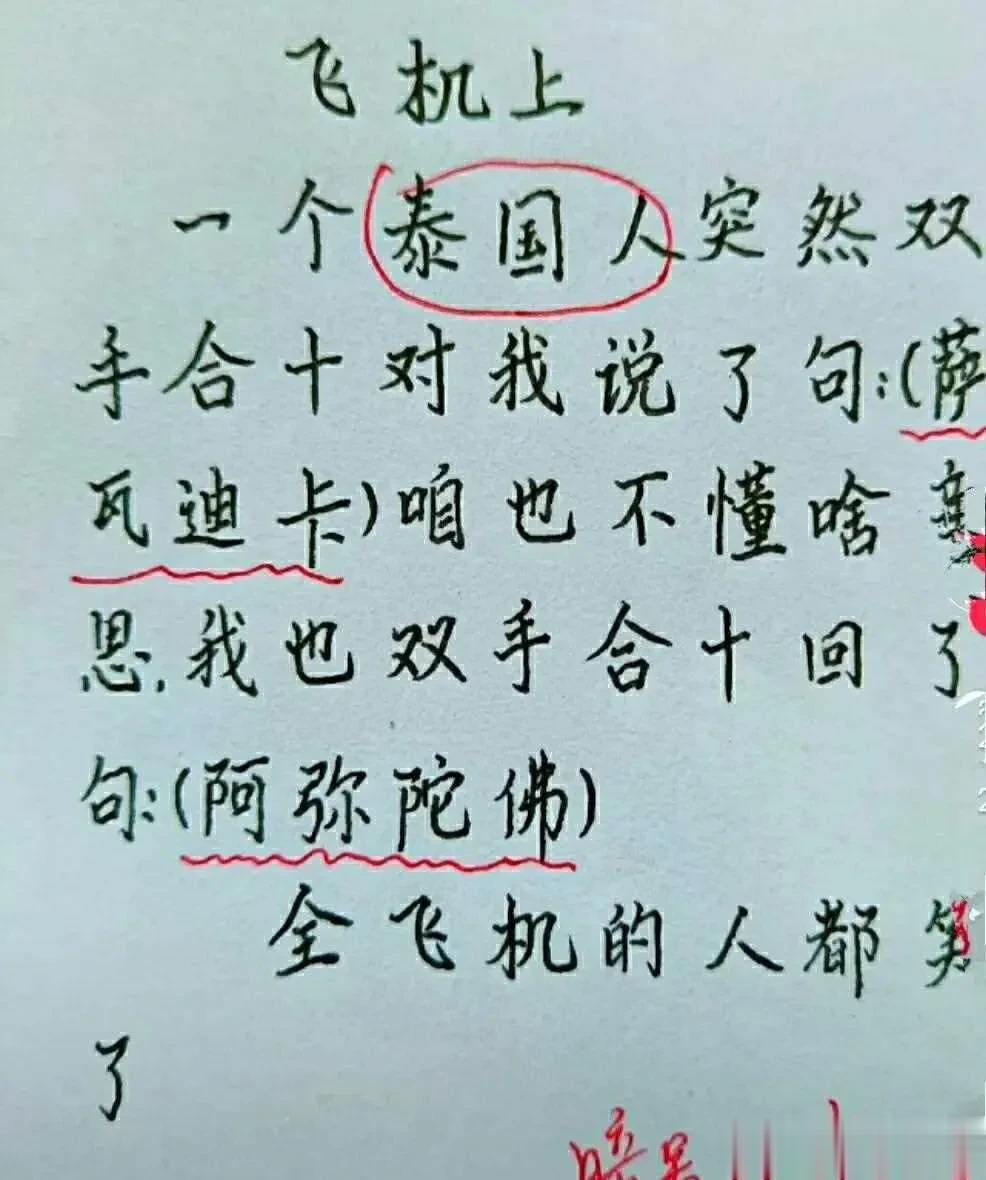 飞机上
一个泰国人突然双
手合十对我说了句:(萨
瓦迪卡)咱也不懂啥意
思,我也双手合十回了
句:(阿弥陀佛)
全飞机的人都笑
了